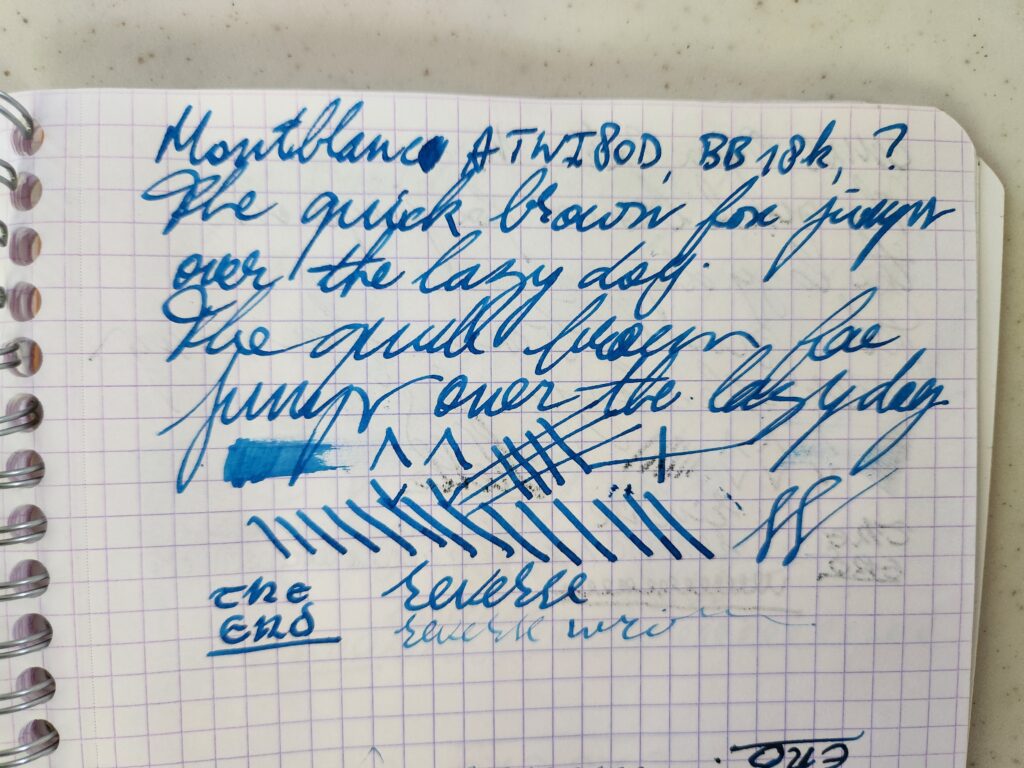 Montblanc ATWI80D, BB 18k, ?
The quick brown fox jumps
over the lazy dog.
The quick brown fox
jumps over the lazy dog
THE
END
reverse
reverse wri
END